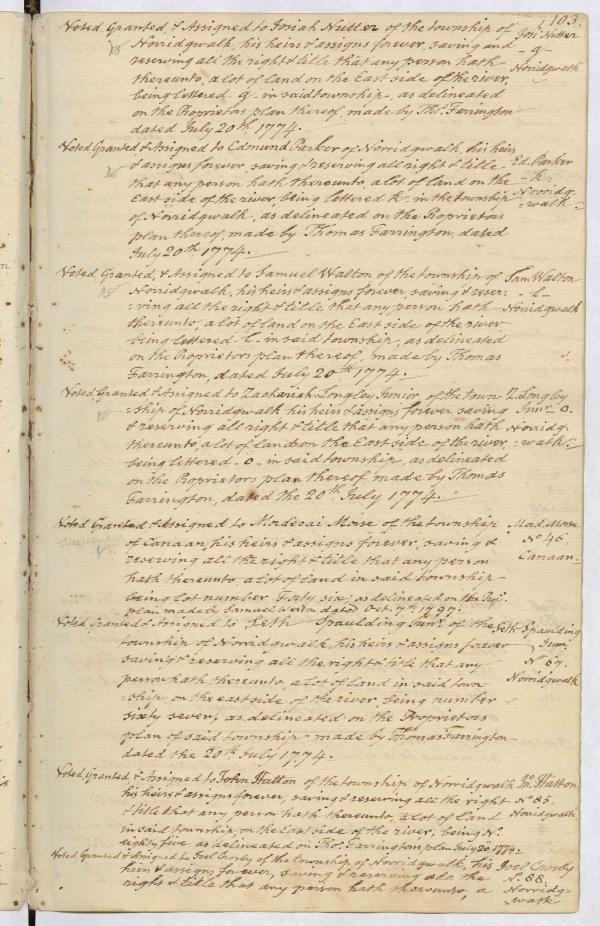 103.
Voted, Granted, & Assigned to Josiah Nutter of the township of
Norridgwalk, his heirs & assigns forever, saving and
reserving all the right & title that any person hath
thereunto, a lot of land on the East side of the river,
being lettered G in said township, as delineated
on the Proprietors plan thereof, made by Tho.s Farrington
dated July 20th 1774.
Jos: Nutter
- G -
Norridgwalk
Voted, Granted & Assigned to Edmund Parker of Norridgwalk, his heirs
& assigns forever, saving & reserving all right & title
that any person hath thereunto, a lot of land on the
East side of the river, being lettered K in the township
of Norridgwalk, as delineated on the Proprietors
plan thereof, made by Thomas Farrington, dated
July 20th 1774.
Ed. Parker
- K -
Norridg-
-walk-
Voted, Granted, & Assigned to Samuel Walton of the township of
Norridgwalk, his heirs & assigns forever saving & reser:
:ving all the right & title that any person hath
thereunto, a lot of land on the East side of the river
being lettered L in said township, as delineated
on the Proprietors plan thereof, made by Thomas
Farrington, dated July 20th 1774.
Sam Walton
- L -
Norridgwalk
Voted, Granted & Assigned to Zachariah Longley Junior of the town
-ship of Norridgwalk his heirs & assigns forever saving
& reserving all right & title that any person hath
thereunto, a lot of land on the East side of the river
being lettered - O - in said township, as delineated
on the Proprietors plan thereof, made by Thomas
Farrington, dated the 20th July 1774.
Z. Longley
Junr. O.
Norridg-
-walk.
Voted Granted & Assigned to Mordecai Morse of the township
of Canaan, his heirs & assigns forever, saving &
reserving all the right & title that any person
hath thereunto, a lot of land in said township
being lot number Forty six, as delineated on the Prop.
plan made by Samuel Weston dated Oct. 7th 1797.
Mord. Morse
No. 46.
Canaan.
Voted, Granted & Assigned to Seth Spaulding Junr. of the
township of Norridgwalk, his heirs & assigns forever
saving & reserving all the right & title that any
person hath thereunto, a lot of land in said town
-ship, on the east side of the river, being number
sixty seven, as delineated on the Proprietors
plan of said township made by Thomas Farrington
dated the 20th July 1774.
Seth Spaulding
Junr.
No. 67.
Norridgwalk
Voted, Granted & Assigned to John Hatton of the township of Norridgwalk
his heirs & assigns forever, saving & reserving all the right
& title that any person hath thereunto, a lot of land
in said township, on the east side of the river, being No.
eighty five as delineated on Tho.s Farringtons plan July 20 1774.
Jn. Hatton
No. 85.
Norridgwalk
Voted Granted & Assigned to Joel Crosby of the township of Norridgwalk, his
heirs & assigns forever, saving & reserving all the
right & title that any person hath thereunto, a
Joel Crosby
No. 88.
Norridg-
-walk